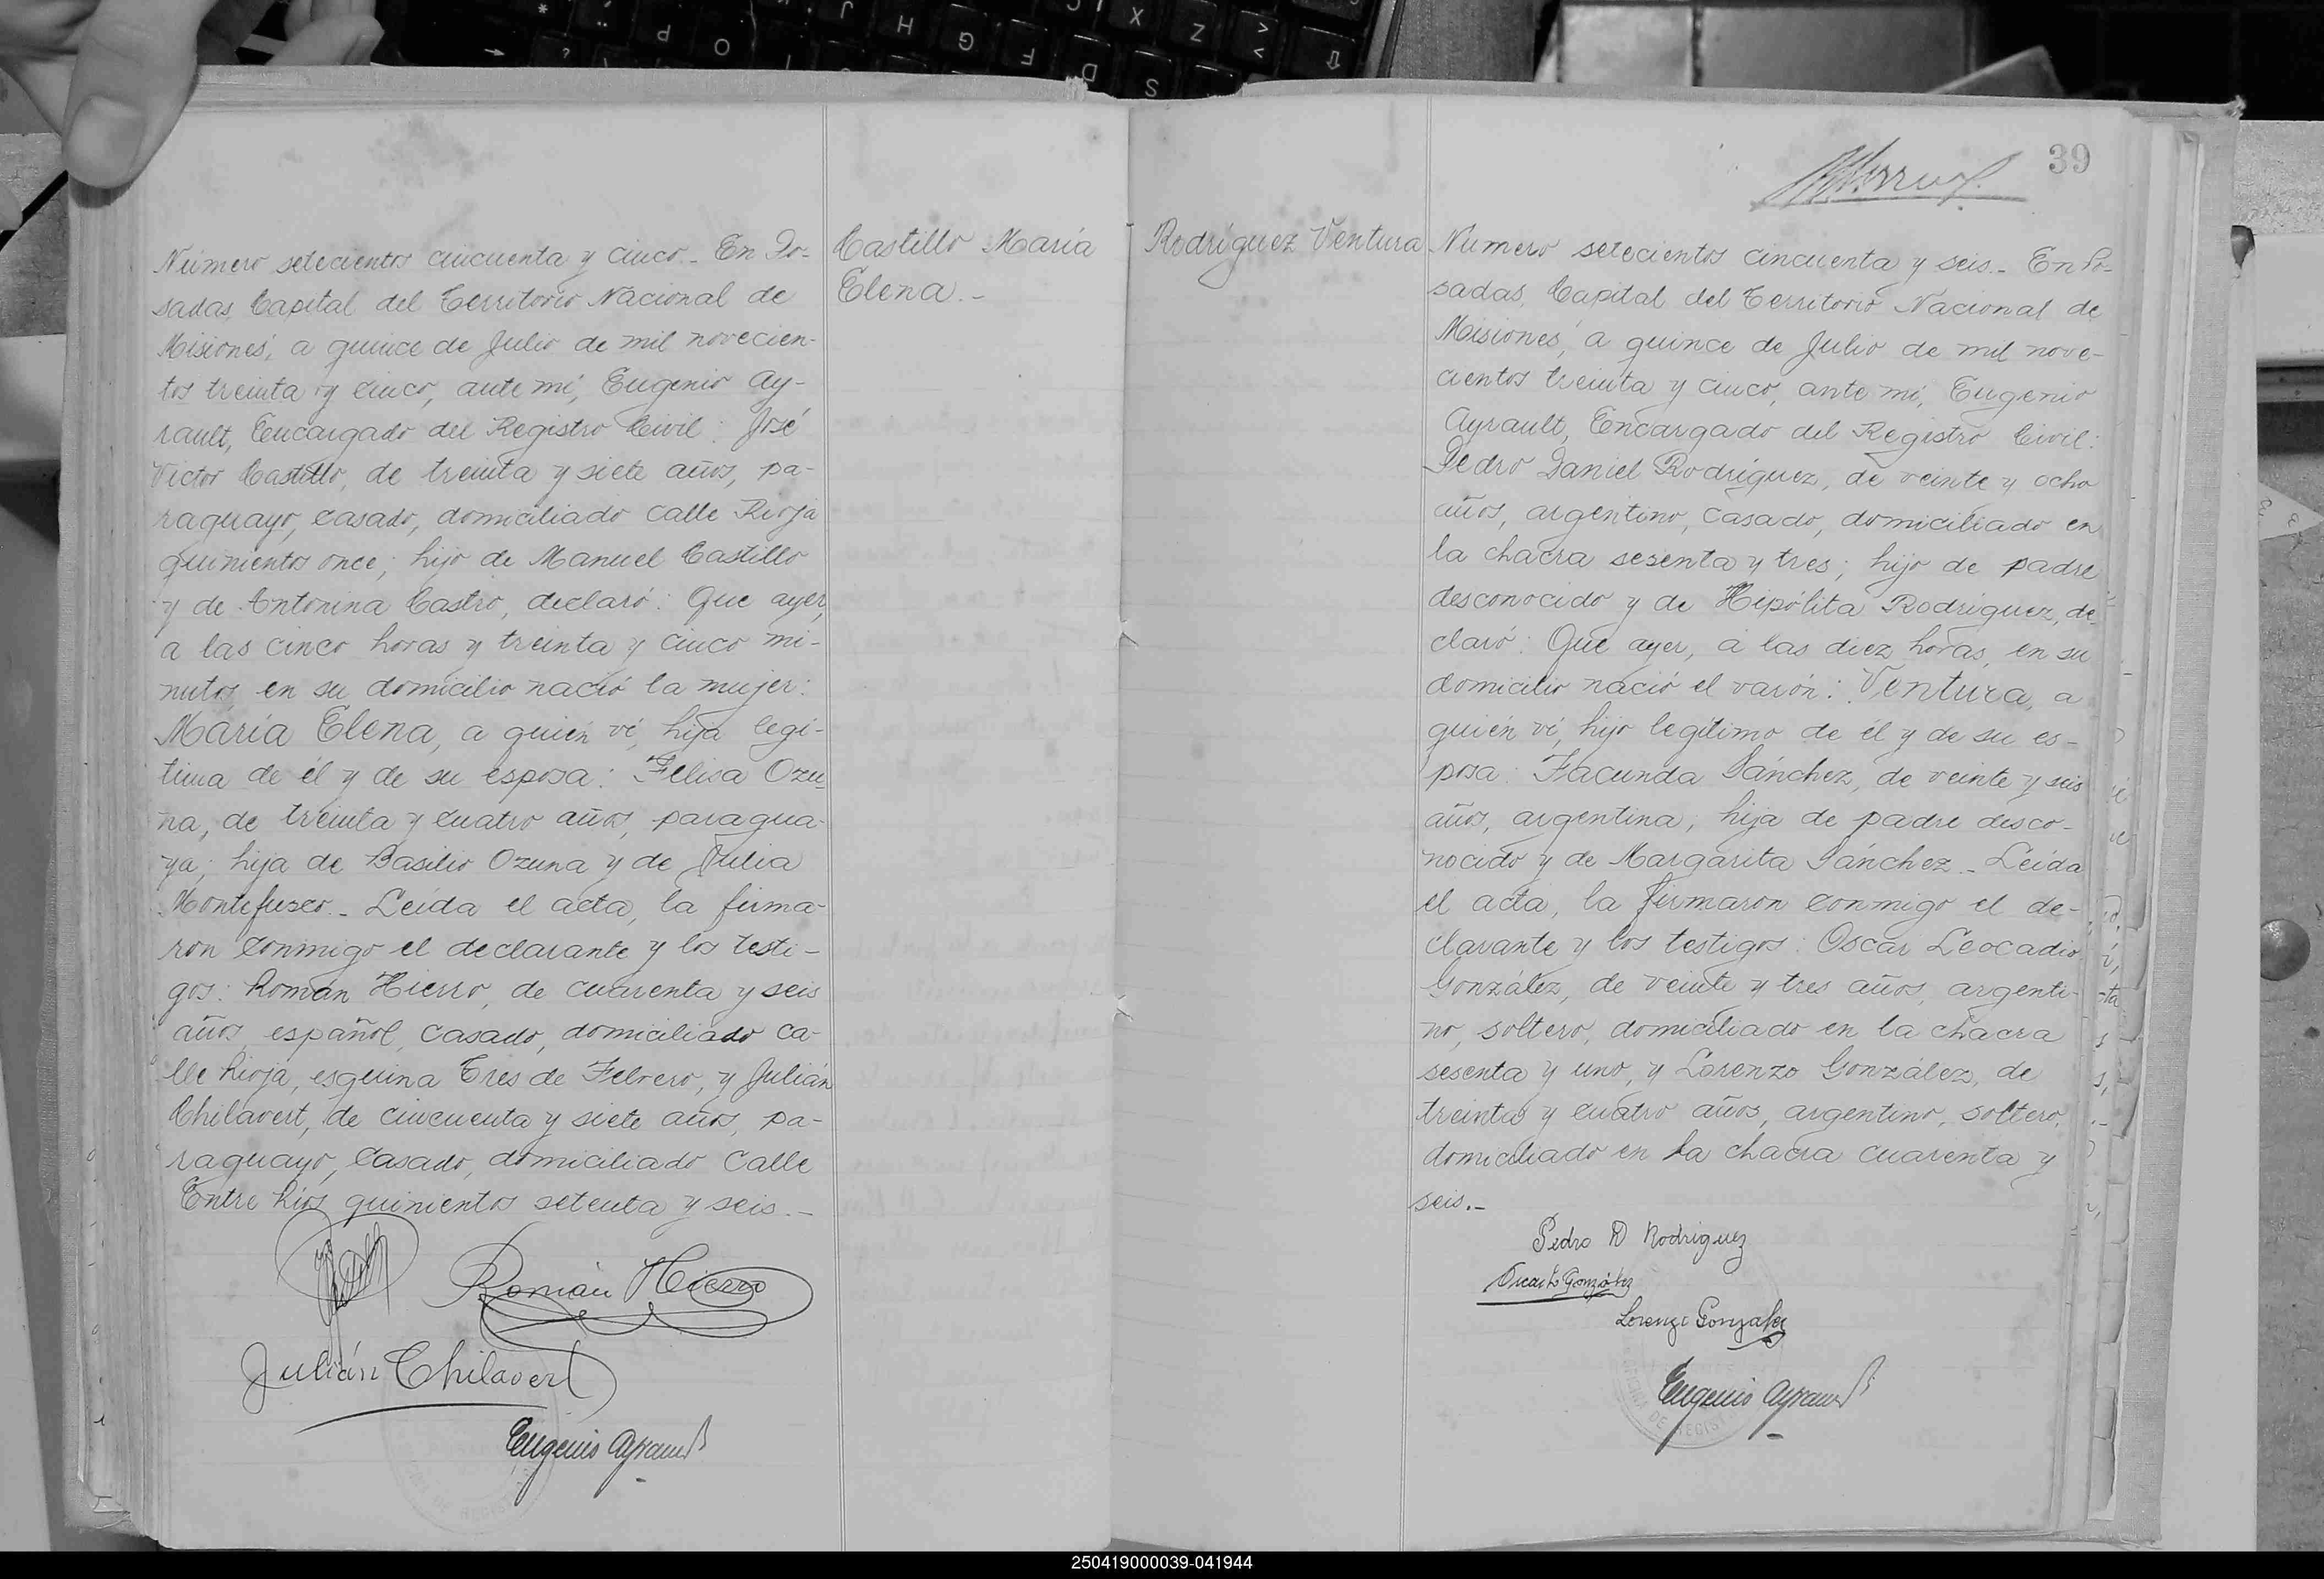 Castillo María
Elena.-
Número setecientos cincuenta y cinco.- En Po-
sadas, Capital del Territorio Nacional de
Misiones, a quince de Julio de mil novecien-
tos treinta y cinco, ante mí, Eugenio Ay-
rault, Encargado del Registro Civil: José
Victor Castillo, de treinta y siete años, pa-
raguayo, casado, domiciliado calle Rioja
quinientos once; hijo de Manuel Castillo
y de Antonina Castro, declaró: Que ayer,
a las cinco horas y treinta y cinco mi-
nutos, en su domicilio nació la mujer:
María Elena, a quién ví, hija legí-
tima de él y de su esposa: Felisa Ozu-
na, de treinta y cuatro años, paragua-
ya; hija de Basilio Ozuna y de Julia
Montefusco.- Leída el acta, la firma-
ron conmigo el declarante y los testi-
gos: Román Hierro, de cuarenta y seis
años, español, casado, domiciliado ca-
lle Rioja, esquina Tres de Febrero, y Julián
Chilavert, de cincuenta y siete años, pa-
raguayo, casado, domiciliado calle
Entre Ríos quinientos setenta y seis.-
Román Hierro
Julián Chilavert
Eugenio Ayrault
39
Rodríguez Ventura
Número setecientos cincuenta y seis.- En Po-
sadas, Capital del Territorio Nacional de
Misiones, a quince de Julio de mil nove-
cientos treinta y cinco, ante mí, Eugenio
Ayrault, Encargado del Registro Civil:
Pedro Daniel Rodríguez, de veinte y ocho
años, argentino, casado, domiciliado en
la chacra sesenta y tres; hijo de padre
desconocido y de Hipólita Rodríguez, de-
claró: Que ayer, a las diez horas, en su
domicilio nació el varón: Ventura, a
quién ví, hijo legítimo de él y de su es-
posa: Facunda Sánchez, de veinte y seis
años, argentina; hija de padre desco-
nocido y de Margarita Sánchez.- Leída
el acta, la firmaron conmigo el de-
clarante y los testigos: Oscar Leocadio
González, de veinte y tres años, argenti-
no, soltero, domiciliado en la chacra
sesenta y uno, y Lorenzo González, de
treinta y cuatro años, argentino, soltero,
domiciliado en la chacra cuarenta y
seis.-
Pedro D Rodriguez
Oscar L González
Lorenzo Gonzalez
Eugenio Ayrault
250419000039-041944